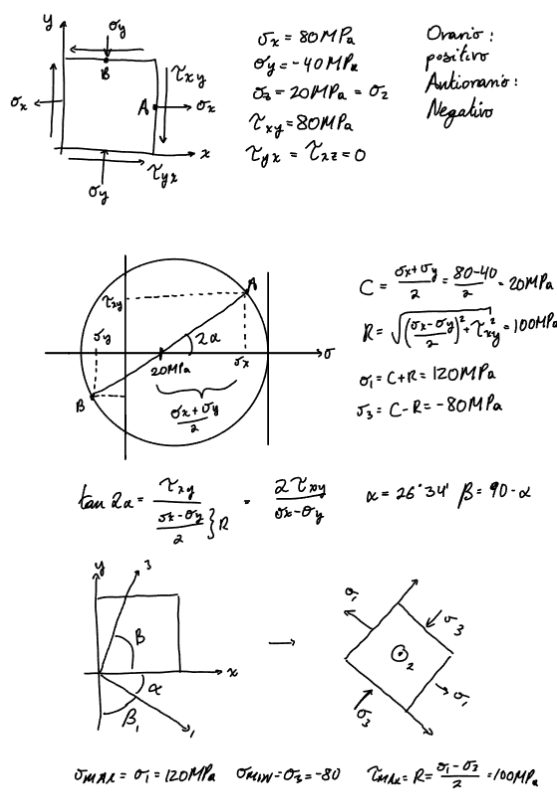 y
σy
B
τxy
σx
A
σx
x
σy
τyx
σx = 80MPa
σy = -40MPa
σ3 = 20MPa = σ2
τxy = 80MPa
τyz = τxz = 0
Orario :
positivo
Antiorario :
Negativo
A
τxy
σy
2α
σ
20MPa
σx
B
σx+σy/2
C = σx+σy/2 = 80-40/2 = 20MPa
R = √((σx-σy/2)²+τxy²) = 100MPa
σ1 = C+R = 120MPa
σ3 = C-R = -80MPa
tan 2α = τxy/(σx-σy/2)}R = 2τxy/σx-σy α = 26°34' β = 90-α
y
3
β
x
α
β1
1
→
σ1
σ3
2
σ1
σ3
σMAX = σ1 = 120MPa σMIN = σ3 = -80 τMAX = R = σ1-σ3/2 = 100MPa